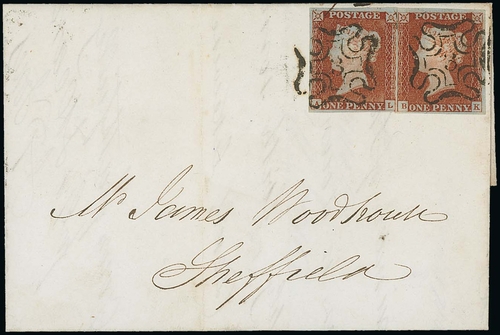 POSTAGE POSTAGE
ONE PENNY L B ONE PENNY K
Mr James Woodhouse
Sheffield